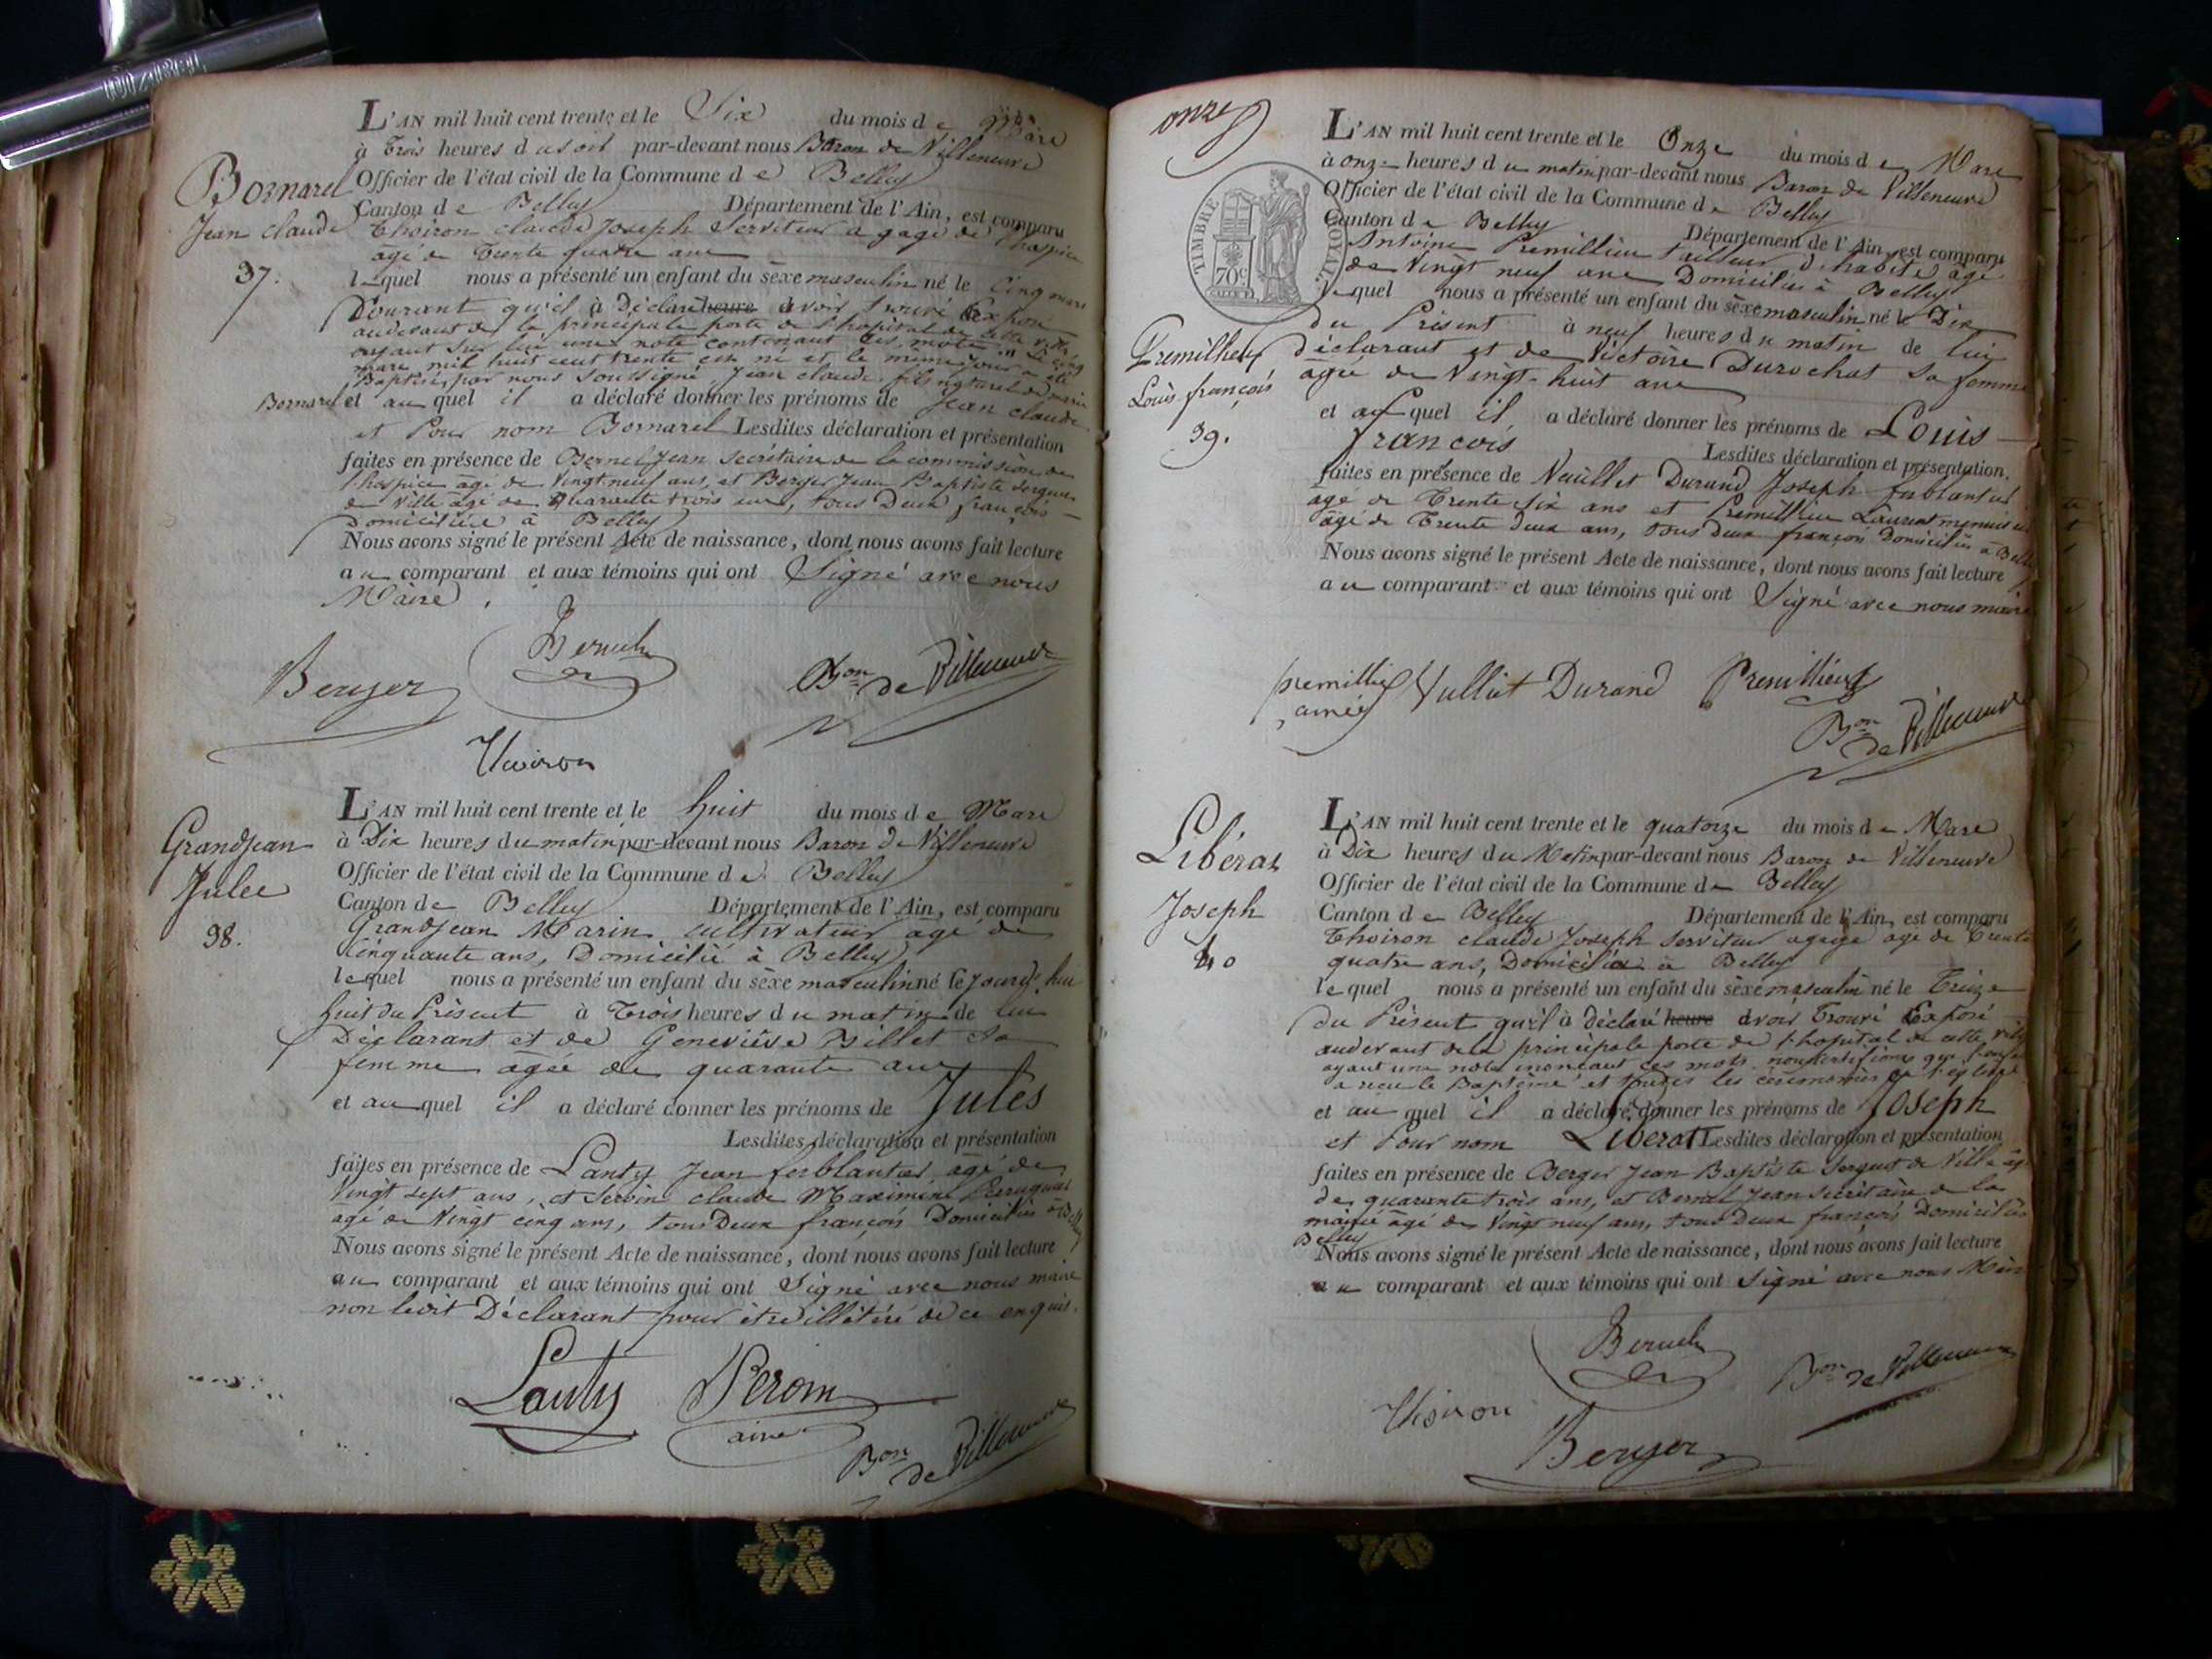 Bornarel
Jean claude
37.
L'AN mil huit cent trente et le Six du mois de Mars
à Trois heures du soir par-devant nous Baron de Villeneuve
Officier de l'état civil de la Commune de Belley
Canton de Belley Département de l'Ain, est comparu
Thoiron claude Joseph Serviteur a gage de l'hospice
âgé de Trente quatre ans
lequel nous a présenté un enfant du sèxe masculin né le Cinq mars
Courant qu'il à Déclaré heure avoir trouvé Exposé
audevant de la principale porte de l'hopital de cette ville
enfant sur lui une note contenant ces mots Le cinq
mars mil huit cent trente est né et le meme jour a été
Baptisé par nous soussigné Jean claude fils naturel de marie
Bornarel et au quel il a déclaré donner les prénoms de Jean claude
et Pour nom Bornarel Lesdites déclaration et présentation
faites en présence de Bernel Jean Secrétaire de la commission de
l'hospice age de Vingt neuf ans, et Berger Jean Baptiste sergent
de Ville âgé de Quarante trois ans, tous Deux françois
Domiciliés à Belley
Nous avons signé le présent Acte de naissance, dont nous avons fait lecture
au comparant et aux témoins qui ont Signé avec nous
Maire.
Berger Bon de Villeneuve
Thoiron
Grandjean
Jules
38.
L'AN mil huit cent trente et le huit du mois de Mars
à Dix heures du matin par-devant nous Baron de Villeneuve
Officier de l'état civil de la Commune de Belley
Canton de Belley Département de l'Ain, est comparu
Grandjean Marin cultivateur agé de
Cinquante ans, Domicilié à Belley
lequel nous a présenté un enfant du sèxe masculin né le Jourd'hui
huit du Présent à Trois heures du matin de lui
Déclarant et de Geneviève Billet sa
femme agée de quarante ans
et au quel il a déclaré donner les prénoms de Jules
Lesdites déclaration et présentation
faites en présence de Lanty Jean ferblantier, âgé de
Vingt sept ans, et claude Maximin Perruquier
agé de Vingt cinq ans, tous Deux françois Domiciliés à Belley
Nous avons signé le présent Acte de naissance, dont nous avons fait lecture
au comparant et aux témoins qui ont Signé avec nous maire
non ledit Déclarant pour être illétéré de ce enquis.
Lanty
ainé
Bon de Villeneuve
onze
TIMBRE ROYAL
70c
L'AN mil huit cent trente et le Onze du mois de Mars
à onze heures du matin par-devant nous Baron de Villeneuve
Officier de l'état civil de la Commune de Belley
Canton de Belley Département de l'Ain, est comparu
Antoine Premillieu tailleur d'habits âgé
de Vingt neuf ans Domicilié à Belley
lequel nous a présenté un enfant du sèxe masculin né le Dix
du Présent à neuf heures du matin de lui
Premillieu
Louis françois
39.
déclarant et de Victoire Durochat sa femme
agée de Vingt-huit ans
et au quel il a déclaré donner les prénoms de Louis
françois Lesdites déclaration et présentation
faites en présence de Durand Joseph ferblantier
âgé de Trente Six ans et Premillieu Laurent menuisier
âgé de Trente deux ans, tous deux françois Domiciliés à Belley
Nous avons signé le présent Acte de naissance, dont nous avons fait lecture
au comparant et aux témoins qui ont Signé avec nous maire
premillieu ainé Vulliet Durand Premillieu
Bon de Villeneuve
Libérat
Joseph
40
L'AN mil huit cent trente et le quatorze du mois de Mars
à Dix heures du Matin par-devant nous Baron de Villeneuve
Officier de l'état civil de la Commune de Belley
Canton de Belley Département de l'Ain, est comparu
Thoiron claude Joseph serviteur agage age de Trente
quatre ans, Domicilié à Belley
lequel nous a présenté un enfant du sèxe masculin né le Treize
du Présent qu'il à déclaré heure avoir Trouvé Exposé
audevant de la principale porte de l'hopital de cette ville
ayant une note ces mots nous certifions que l'enfant
a reçu le Baptême et toutes les cérémonies de l'église
et au quel il a déclaré donner les prénoms de Joseph
et Pour nom Liberat Lesdites déclaration et présentation
faites en présence de Berger Jean Baptiste Sergent de Ville âgé
de quarante trois ans, et Bernel Jean secrétaire de la
mairie âgé de Vingt neuf ans, tous Deux françois Domiciliés
Belley
Nous avons signé le présent Acte de naissance, dont nous avons fait lecture
au comparant et aux témoins qui ont Signé avec nous Maire
Bon de Villeneuve
Thoiron
Berger